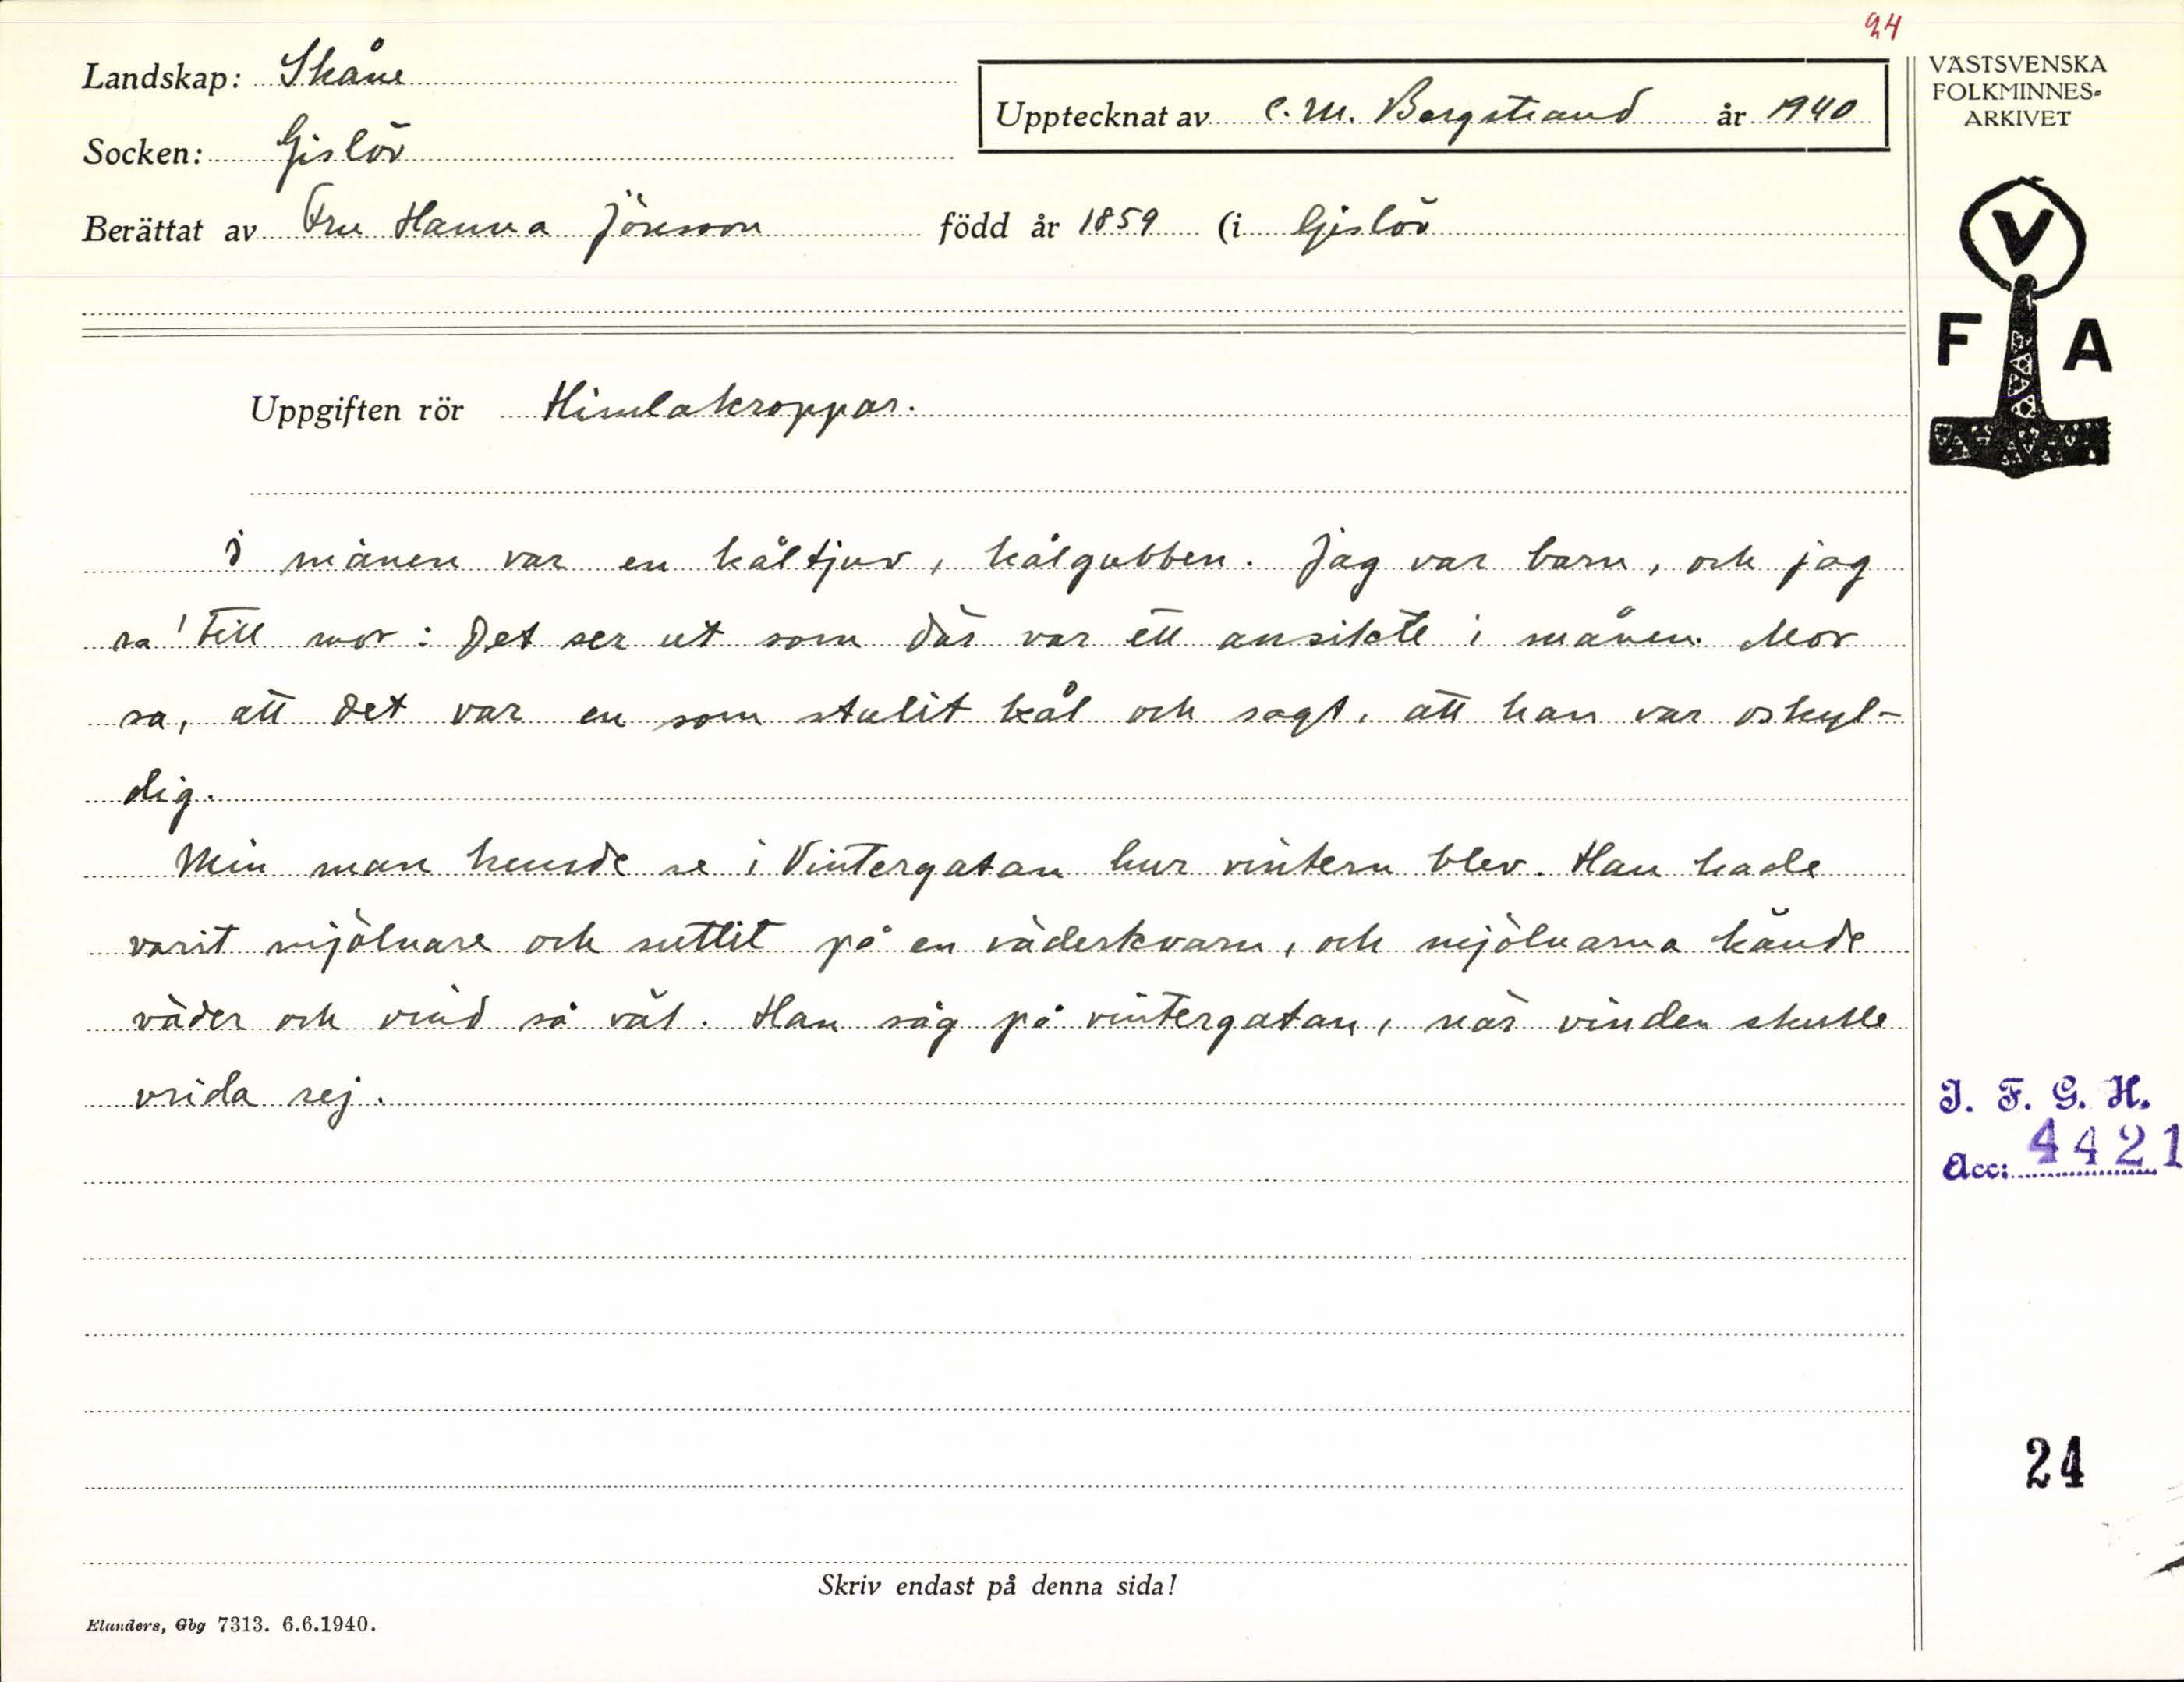 24
Landskap: Skåne
Upptecknat av C. M. Bergstrand år 1940
Socken: Gislöv
Berättat av Fru Hanna Jönsson född år 1859 (i Gislöv
VÄSTSVENSKA
FOLKMINNES-
ARKIVET
V
F A
Uppgiften rör Himlakroppar.
I månen var en kåltjuv, kålgubben. Jag var barn, och jag
sa' till mor: Det ser ut som där var ett ansikte i månen. Mor
sa, att det var en som stulit kål och sagt, att han var oskyl-
dig.
Min man kunde se i Vintergatan hur vintern blev. Han hade
varit mjölnare och suttit på en väderkvarn, och mjölnarna kände
väder och vind så väl. Han såg på vintergatan, när vinden skulle
vrida sej.
I. F. G. H.
Acc: 4421
24
Skriv endast på denna sida!
Elanders, Gbg 7313. 6.6.1940.